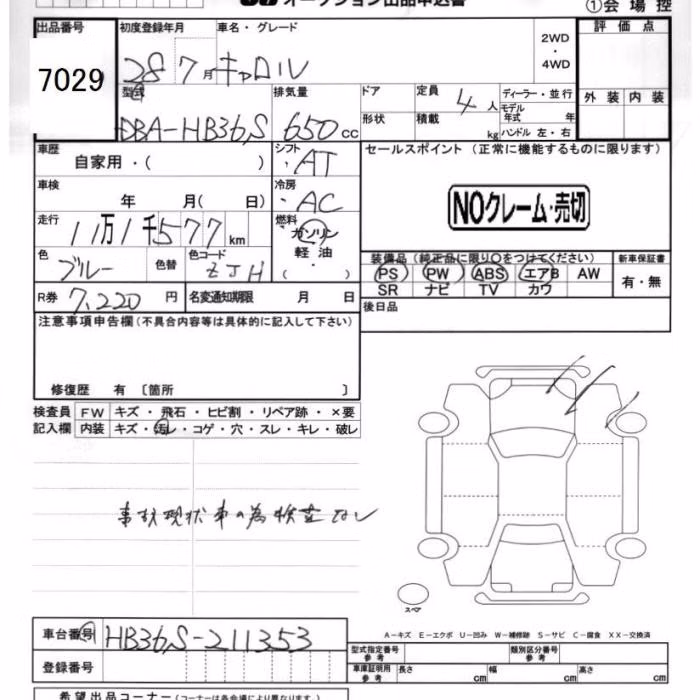 オークション出品申込書
①会場控
出品番号 初度登録年月 車名・グレード 評価点
7029 28 7月 キャロル 2WD・4WD
型式 排気量 ドア 定員 4人 ディーラー・並行 外装 内装
DBA-HB36S 650cc 形状 積載 kg モデル年式 年 ハンドル 左・右
車歴 自家用・( ) シフト ・AT セールスポイント (正常に機能するものに限ります)
車検 年 月( 日) 冷房 ・AC NOクレーム・売切
走行 11万1千577km 燃料 ・ガソリン 軽油 ( ・ )
色 ブルー 色替 色コード ZJH 装備品 (純正品に限り〇をつけてください) 新車保証書
PS PW ABS エアB AW 有・無
SR ナビ TV カワ
R券 7,220円 名変通知期限 月 日 後日品
注意事項申告欄(不具合内容等は具体的に記入して下さい)
修復歴 有 〔箇所 〕
検査員 FW キズ・飛石・ヒビ割・リペア跡・×要
記入欄 内装 キズ・汚レ・コゲ・穴・スレ・キレ・破レ
事故現状車の為検査なし
スペア
A-キズ E-エクボ U-凹み W-補修跡 S-サビ C-腐食 XX-交換済
車台番号 HB36S-211353 型式指定番号 参考 類別区分番号 参考
登録番号 車庫証明用 参考 長さ cm 幅 cm 高さ cm
希望出品コーナー(コーナーは各会場により異なります。)